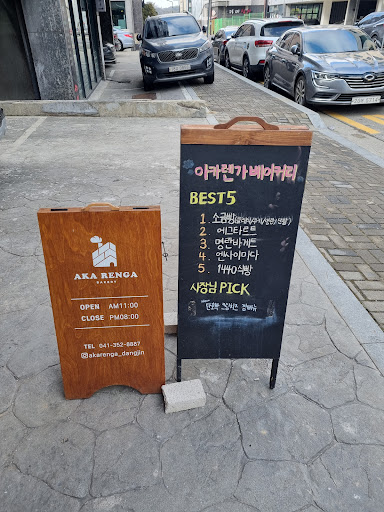 AKA RENGA
BAKERY
OPEN AM11:00
CLOSE PM08:00
TEL 041-352-8887
@akarenga_dangjin
아카렌가 베이커리
BEST5
1. 소금빵
2. 에그타르트
3. 명란바게트
4. 엔사이마다
5. 1440식빵
사장님 PICK